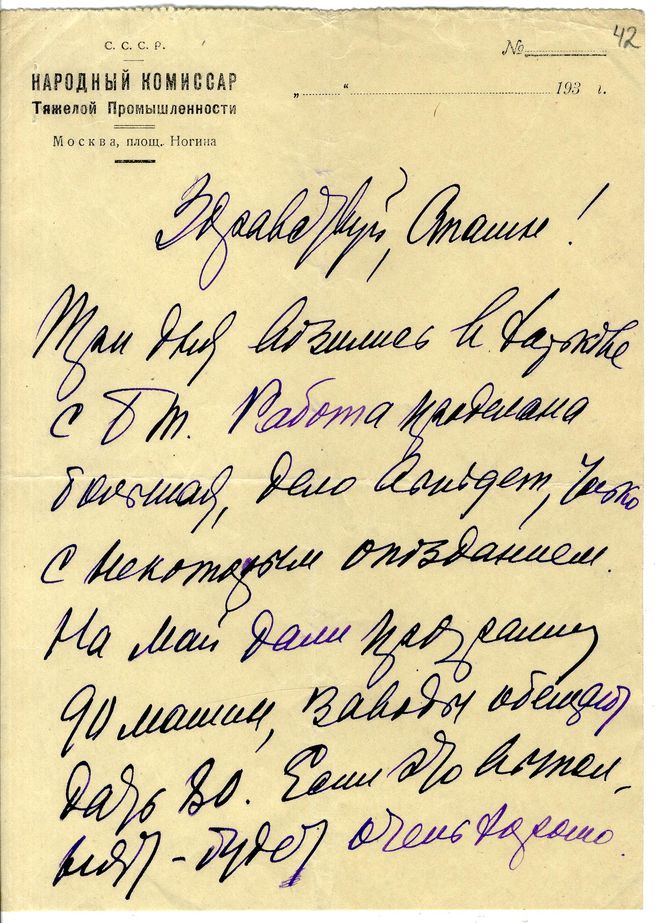 42
С. С. С. Р.
НАРОДНЫЙ КОМИССАР
Тяжелой Промышленности
Москва, площ. Ногина
№
„ “ 193 г.
Здравствуй, Сталин!
Три дня возились в Харькове
с БТ. Работа проделана
большая, дело выйдет, только
с некоторым опозданием.
На май дали программу
90 машин, заводы обещают
дать 80. Если это выпол-
нят – будет очень хорошо.